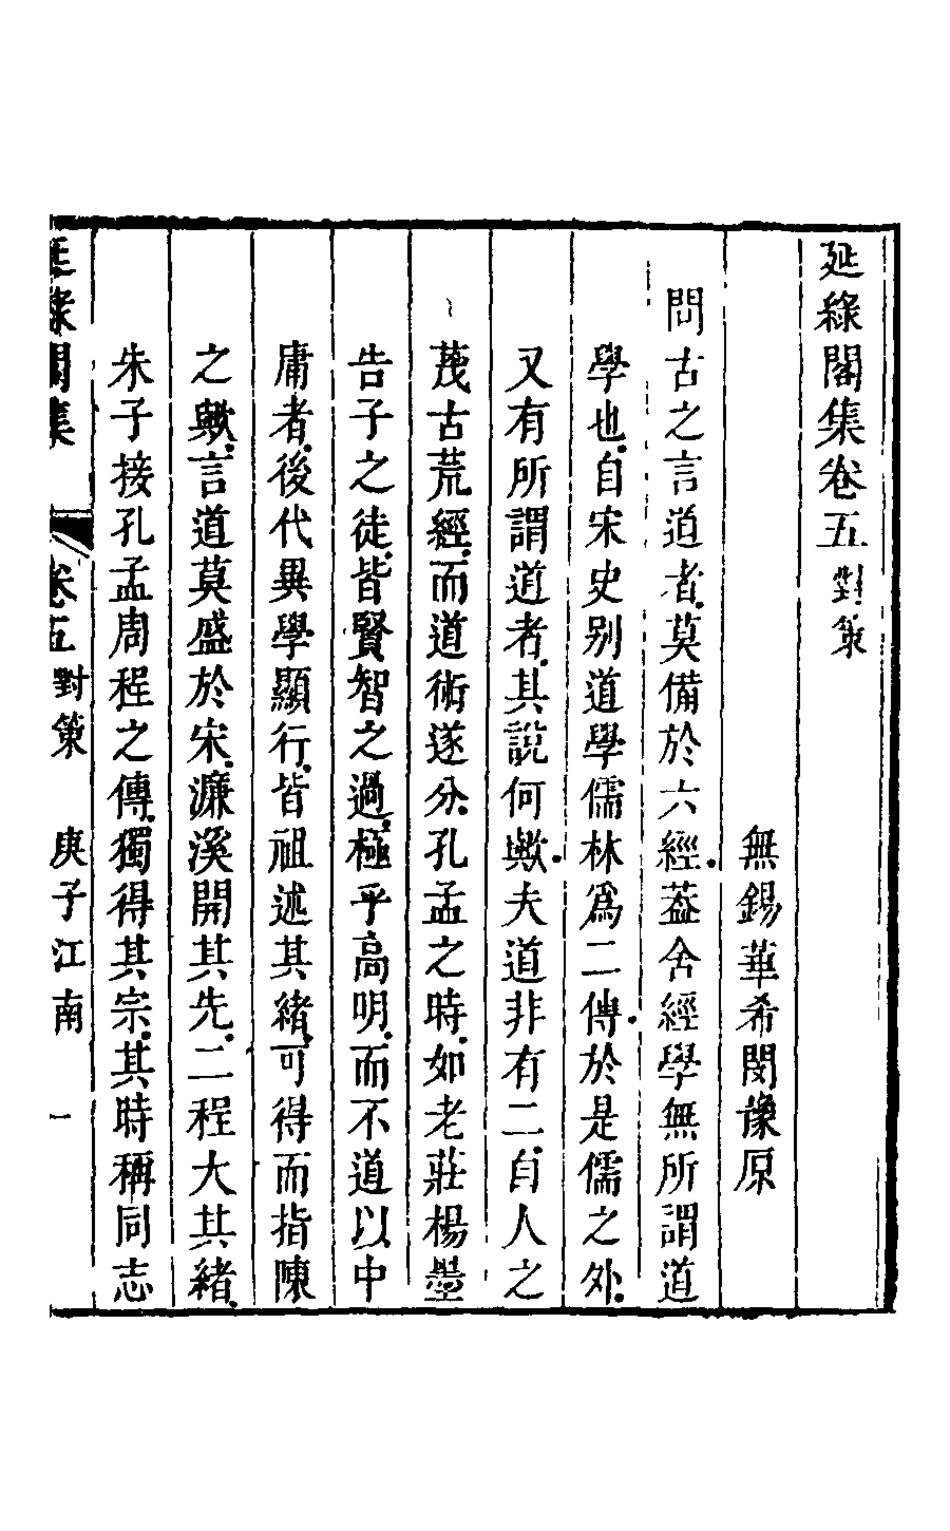 延綠閣集卷五對策
無錫華希閔豫原
問古之言道者莫備於六經蓋舍經學無所謂道
學也自宋史别道學儒林爲二傳於是儒之外
又有所謂道者其說何歟夫道非有二自人之
蔑古荒經而道術遂分孔孟之時如老莊楊墨
告子之徒皆賢智之過極乎高明而不道以中
庸者後代異學顯行皆祖述其緒可得而指陳
之歟言道莫盛於宋濂溪開其先二程大其緒
朱子接孔孟周程之傳獨得其宗其時稱同志
延綠閣集 卷五對策 庚子江南 一